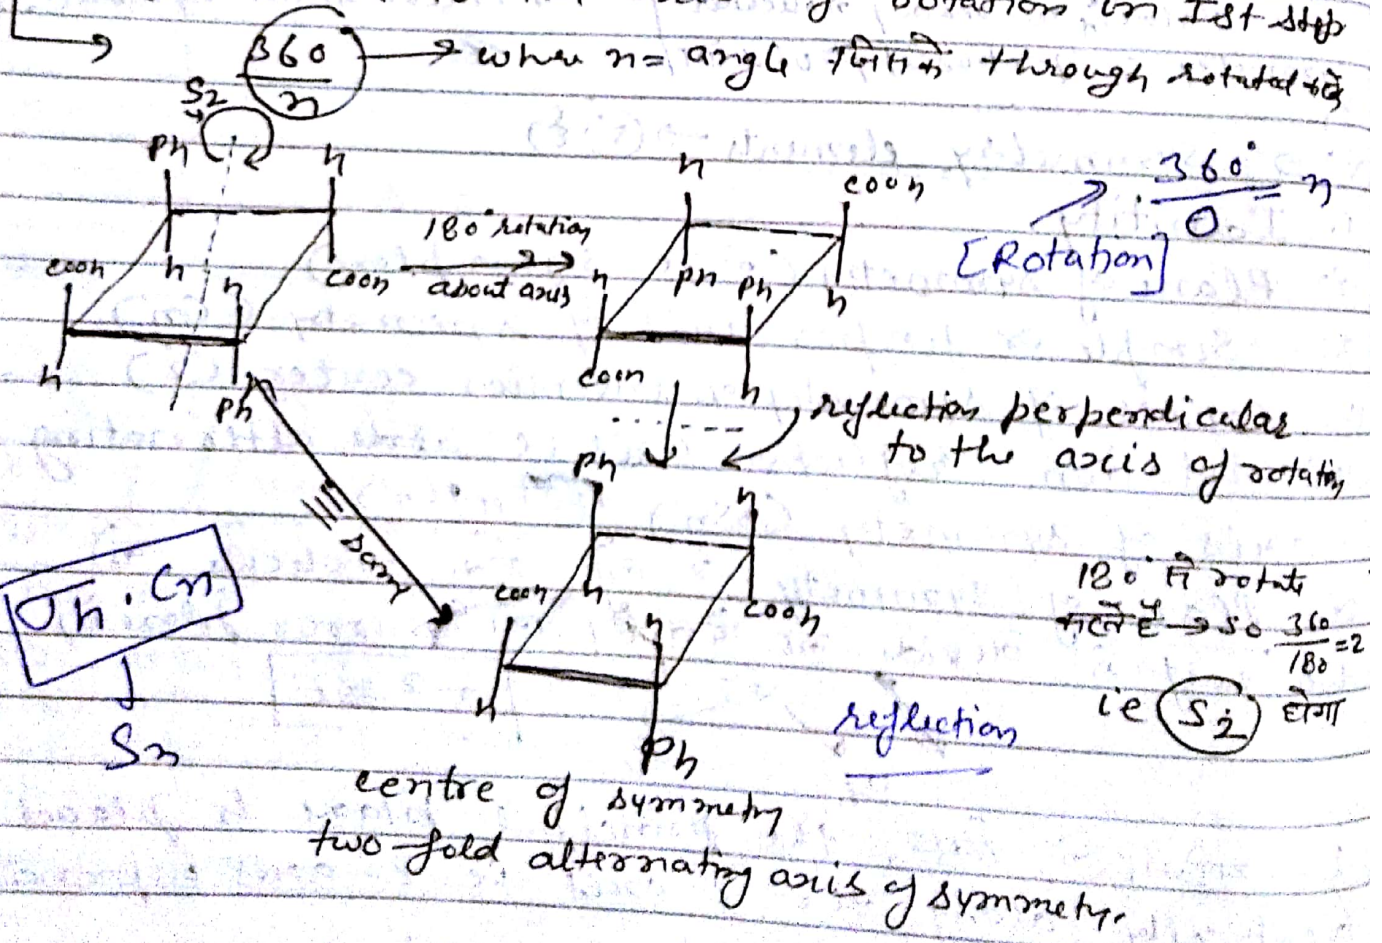 rotation in Ist step
360/n → when n = angle जिसके through rotated
S2
Ph H
COOH H H COOH
H Ph
180° rotation
about axis
H COOH
H Ph Ph H
COOH H
360°/θ = n
[Rotation]
reflection perpendicular
to the axis of rotation
Ph H
COOH H H COOH
H Ph
≡ sam
σh · Cn
↓
Sn
180° से rotate
करते हैं → so 360/180 = 2
ie S2 होगा
reflection
centre of symmetry
two-fold alternating axis of symmetry.